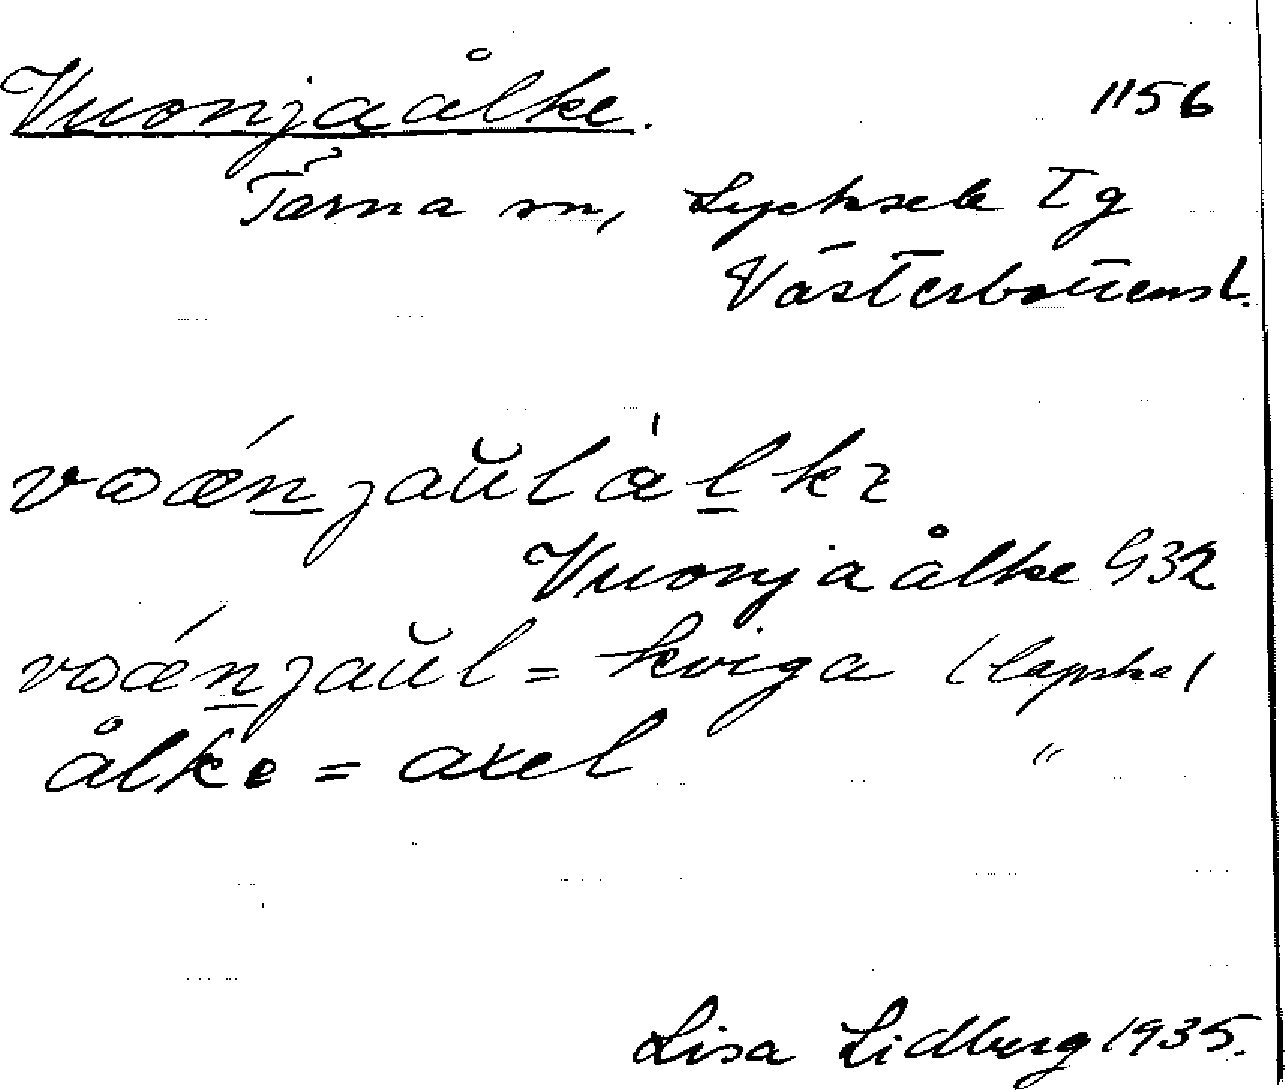 Vuonjaålke. 1156
Tärna sn, Lycksele Tg
Västerbottensl.
voænjaŭlàlkɩ
Vuonjaålke G32
voænjaŭl = kviga (lapska)
ålke = axel "
Lisa Lidberg 1935.